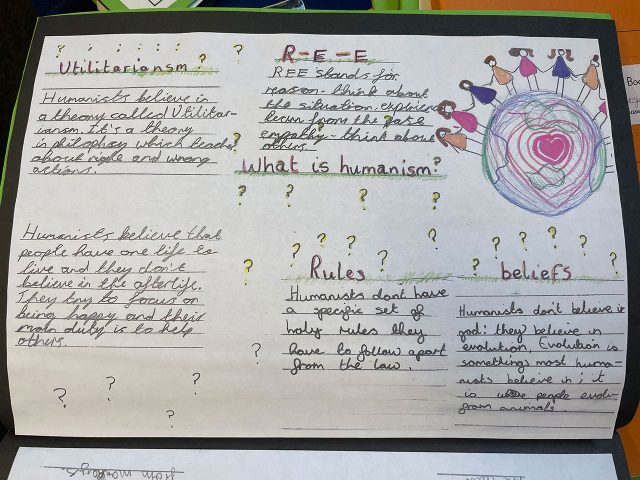 Utilitariansm
Humanists believe in
a theory called Utilitar-
ianism. It's a theory
in philosophy which teaches
about right and wrong
actions.
R-E-E
REE stands for
reason-think about
the situation. experience
learn from the past
empathy-think about
others.
What is humanism?
Humanists believe that
people have one life to
live and they don't
believe in the afterlife.
They try to focus on
being happy and their
main duty is to help
others.
Rules
Humanists dont have
a specific set of
holy rules they
have to follow apart
from the law.
beliefs
Humanists don't believe in
god: they believe in
evolution. Evolution is
something most huma-
nists believe in; it
is people evolv-
from animals.
from monkeys.